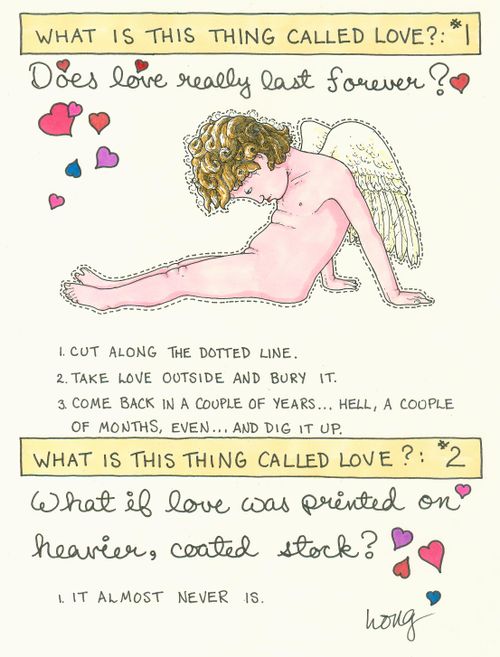 WHAT IS THIS THING CALLED LOVE?: #1
Does love really last forever?
1. CUT ALONG THE DOTTED LINE.
2. TAKE LOVE OUTSIDE AND BURY IT.
3. COME BACK IN A COUPLE OF YEARS... HELL, A COUPLE
OF MONTHS, EVEN... AND DIG IT UP.
WHAT IS THIS THING CALLED LOVE?: #2
What if love was printed on
heavier, coated stock?
1. IT ALMOST NEVER IS.